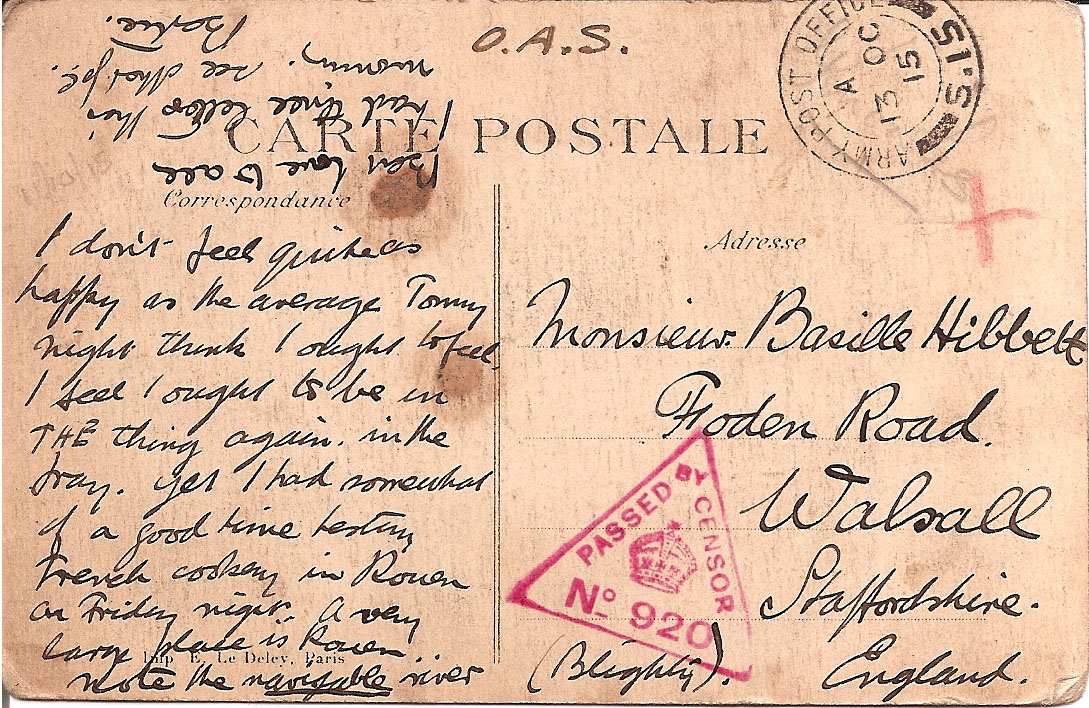 O.A.S.
ARMY POST OFFICE
S.15
13 OC
15
CARTE POSTALE
Correspondance
Adresse
I don't feel quite as
happy as the average Tommy
might think I ought to feel,
I feel I ought to be in
THE thing again. in the
fray. yet I had somewhat
of a good time testing
French cookery in Rouen
on Friday night. A very
large place is Rouen
note the navigable river
Imp E. Le Deley, Paris
Best love to all
I had three letters this
morning. See
Bertie.
Monsieur Basille Hibbett
Foden Road.
Walsall
Staffordshire.
(Blighty). England.
PASSED BY CENSOR
No. 920